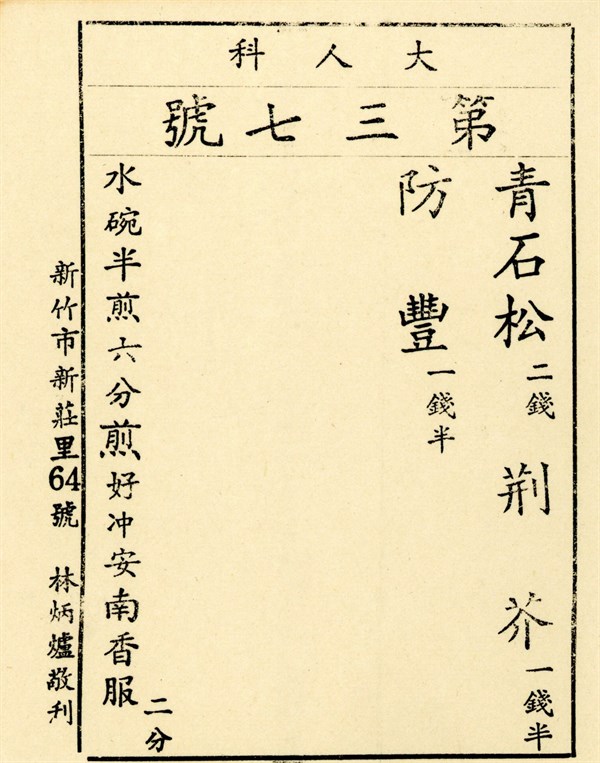 大人科
第三七號
青石松二錢 荆芥一錢半
防豐一錢半
水碗半煎六分煎好冲安南香服二分
新竹市新莊里64號 林炳爐敬刊